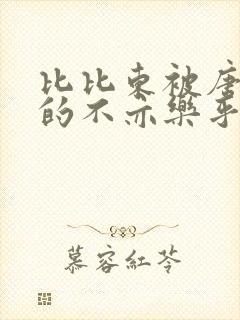 比比东被唐
的不亦樂乎
慕容紅苓